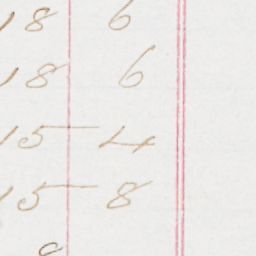 18 6
18 6
15 4
15 8